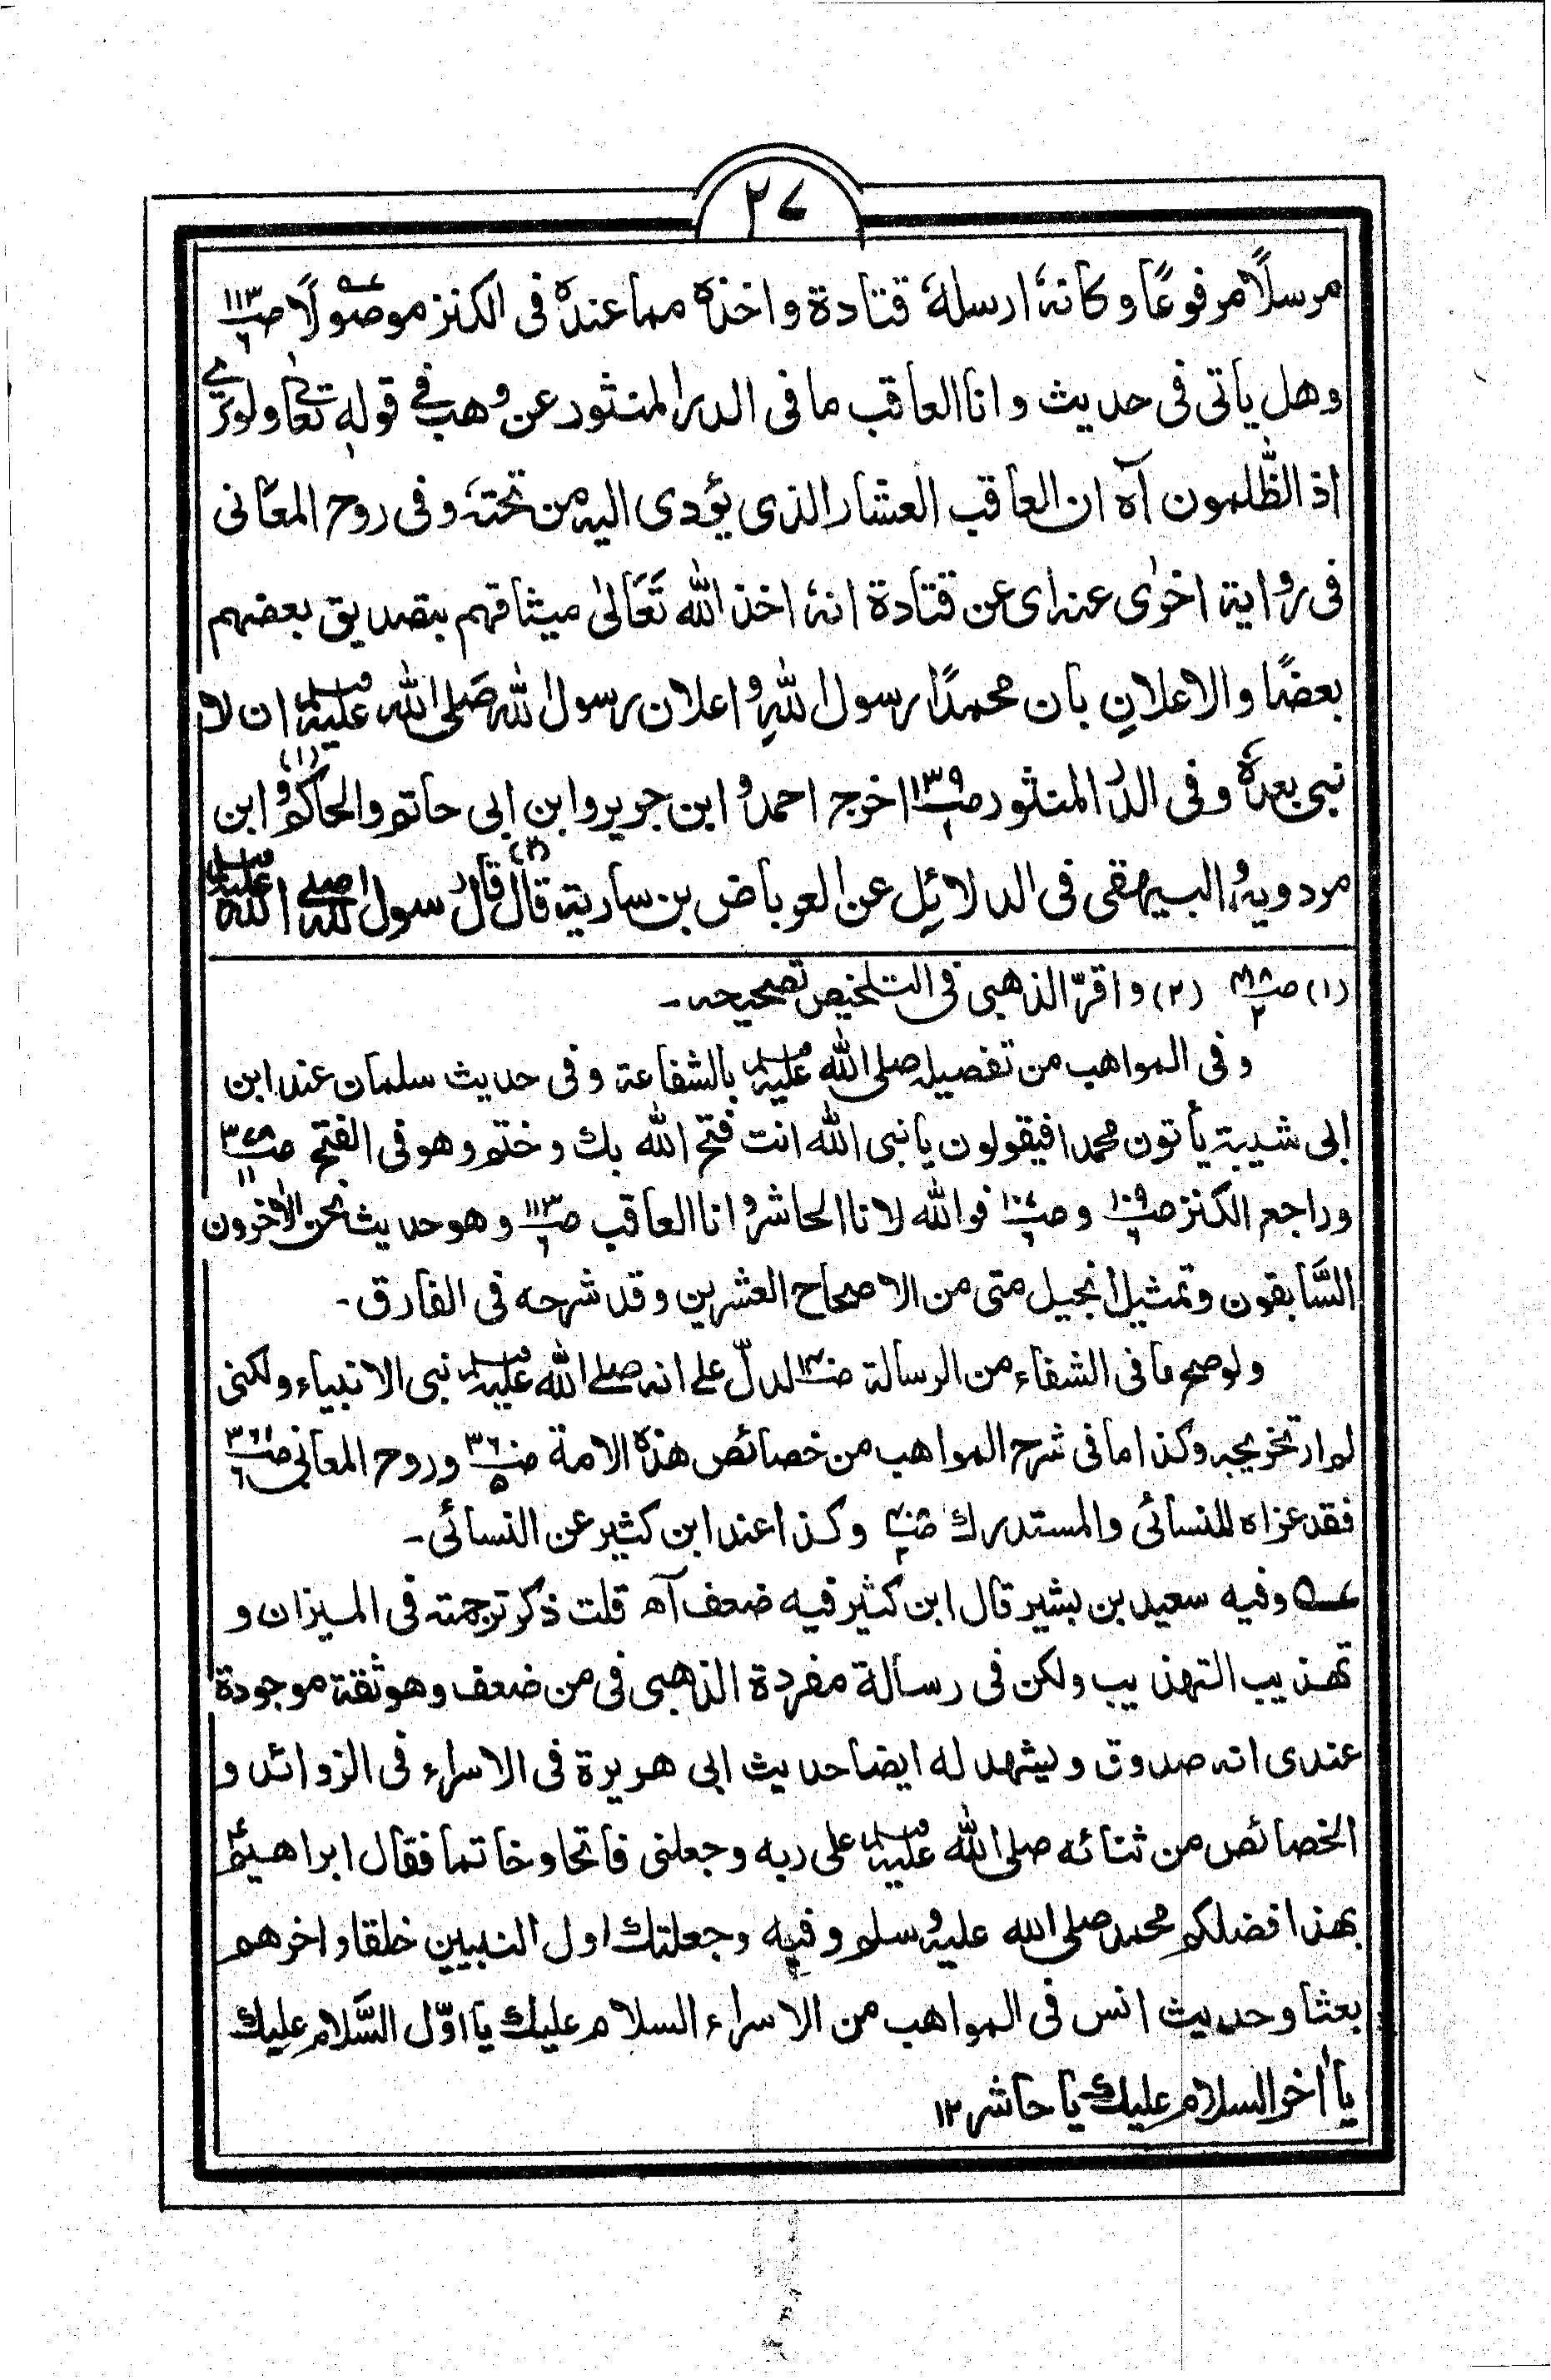 ۲۷
مرسلًا مرفوعًا وكانهٗ ارسلهٗ قتادة واخذه مما عندهٗ فى الكنز موصولًا ص۱۱۳/۶
وهل ياتى فى حديث وانا العاقب ما فى الدر المنثور عن وهب فى قوله تعالى ولو ترى
اذ الظّٰلمون آه ان العاقب العشار الذى يؤدى اليه من تحته وفى روح المعانى
فى رواية اخرٰى عنه اى عن قتادة انهٗ اخذ الله تعالىٰ ميثاقهم بتصديق بعضهم
بعضًا والاعلان بان محمدًا رسول اللهِ واعلان رسول الله صلى الله عليه وسلم ان لا
نبى بعدهٗ وفى الدُر المنثور ص۱۳۹/۱ اخرج احمد وابن جرير وابن ابى حاتم والحاكم (۱) وابن
مردويه والبيهقى فى الدلائل عن العرباض بن سارية قال (۲) قال رسول الله صلى الله عليه وسلم
(۱) ص۴۱۸/۲ (۲) واقرّ الذهبى فى التلخيص تصحيحه۔
وفى المواهب من تفصيله صلى الله عليه وسلم بالشفاعة وفى حديث سلمان عند ابن
ابى شيبة يأتون محمدا فيقولون يا نبى الله انت فتح الله بك وختم وهو فى الفتح ص۳۷۸/۱۱
وراجع الكنز ص۱۰۹/۶ و ص۱۰۷/۶ فوالله لانا الحاشر وانا العاقب ص۱۱۳/۶ وهو حديث نحن الآخرون
السَّابقون وتمثيل انجيل متى من الاصحاح العشرين وقد شرحه فى الفارق۔
ولو صح ما فى الشفاء من الرسالة لدلّ على انه صلى الله عليه وسلم نبى الانبياء ولكنى
لم ار تخريجه وكذا ما فى شرح المواهب من خصائص هذه الامة ص۳۶۰/۵ وروح المعانى
فقد عزاه للنسائى والمستدرك وكذا عند ابن كثير عن النسائى۔
؎۵ وفيه سعيد بن بشير قال ابن كثير فيه ضعف آه قلت ذكر ترجمته فى الميزان و
تهذيب التهذيب ولكن فى رسالة مفردة الذهبى فى من ضعف وهو ثقة موجودة
عندى انه صدوق ويشهد له ايضا حديث ابى هريرة فى الاسراء فى الزوائد و
الخصائص من ثنائه صلى الله عليه وسلم على ربه وجعلنى فاتحا وخاتما فقال ابراهيمؑ
بهذا افضلكم محمد صلى الله عليه وسلم وفيه وجعلتك اول النبيين خلقا واخرهم
بعثا وحديث انس فى المواهب من الاسراء السلام عليك يا اوّل السَّلام عليك
يا اٰخر السلام عليك يا حاشر ۱۲